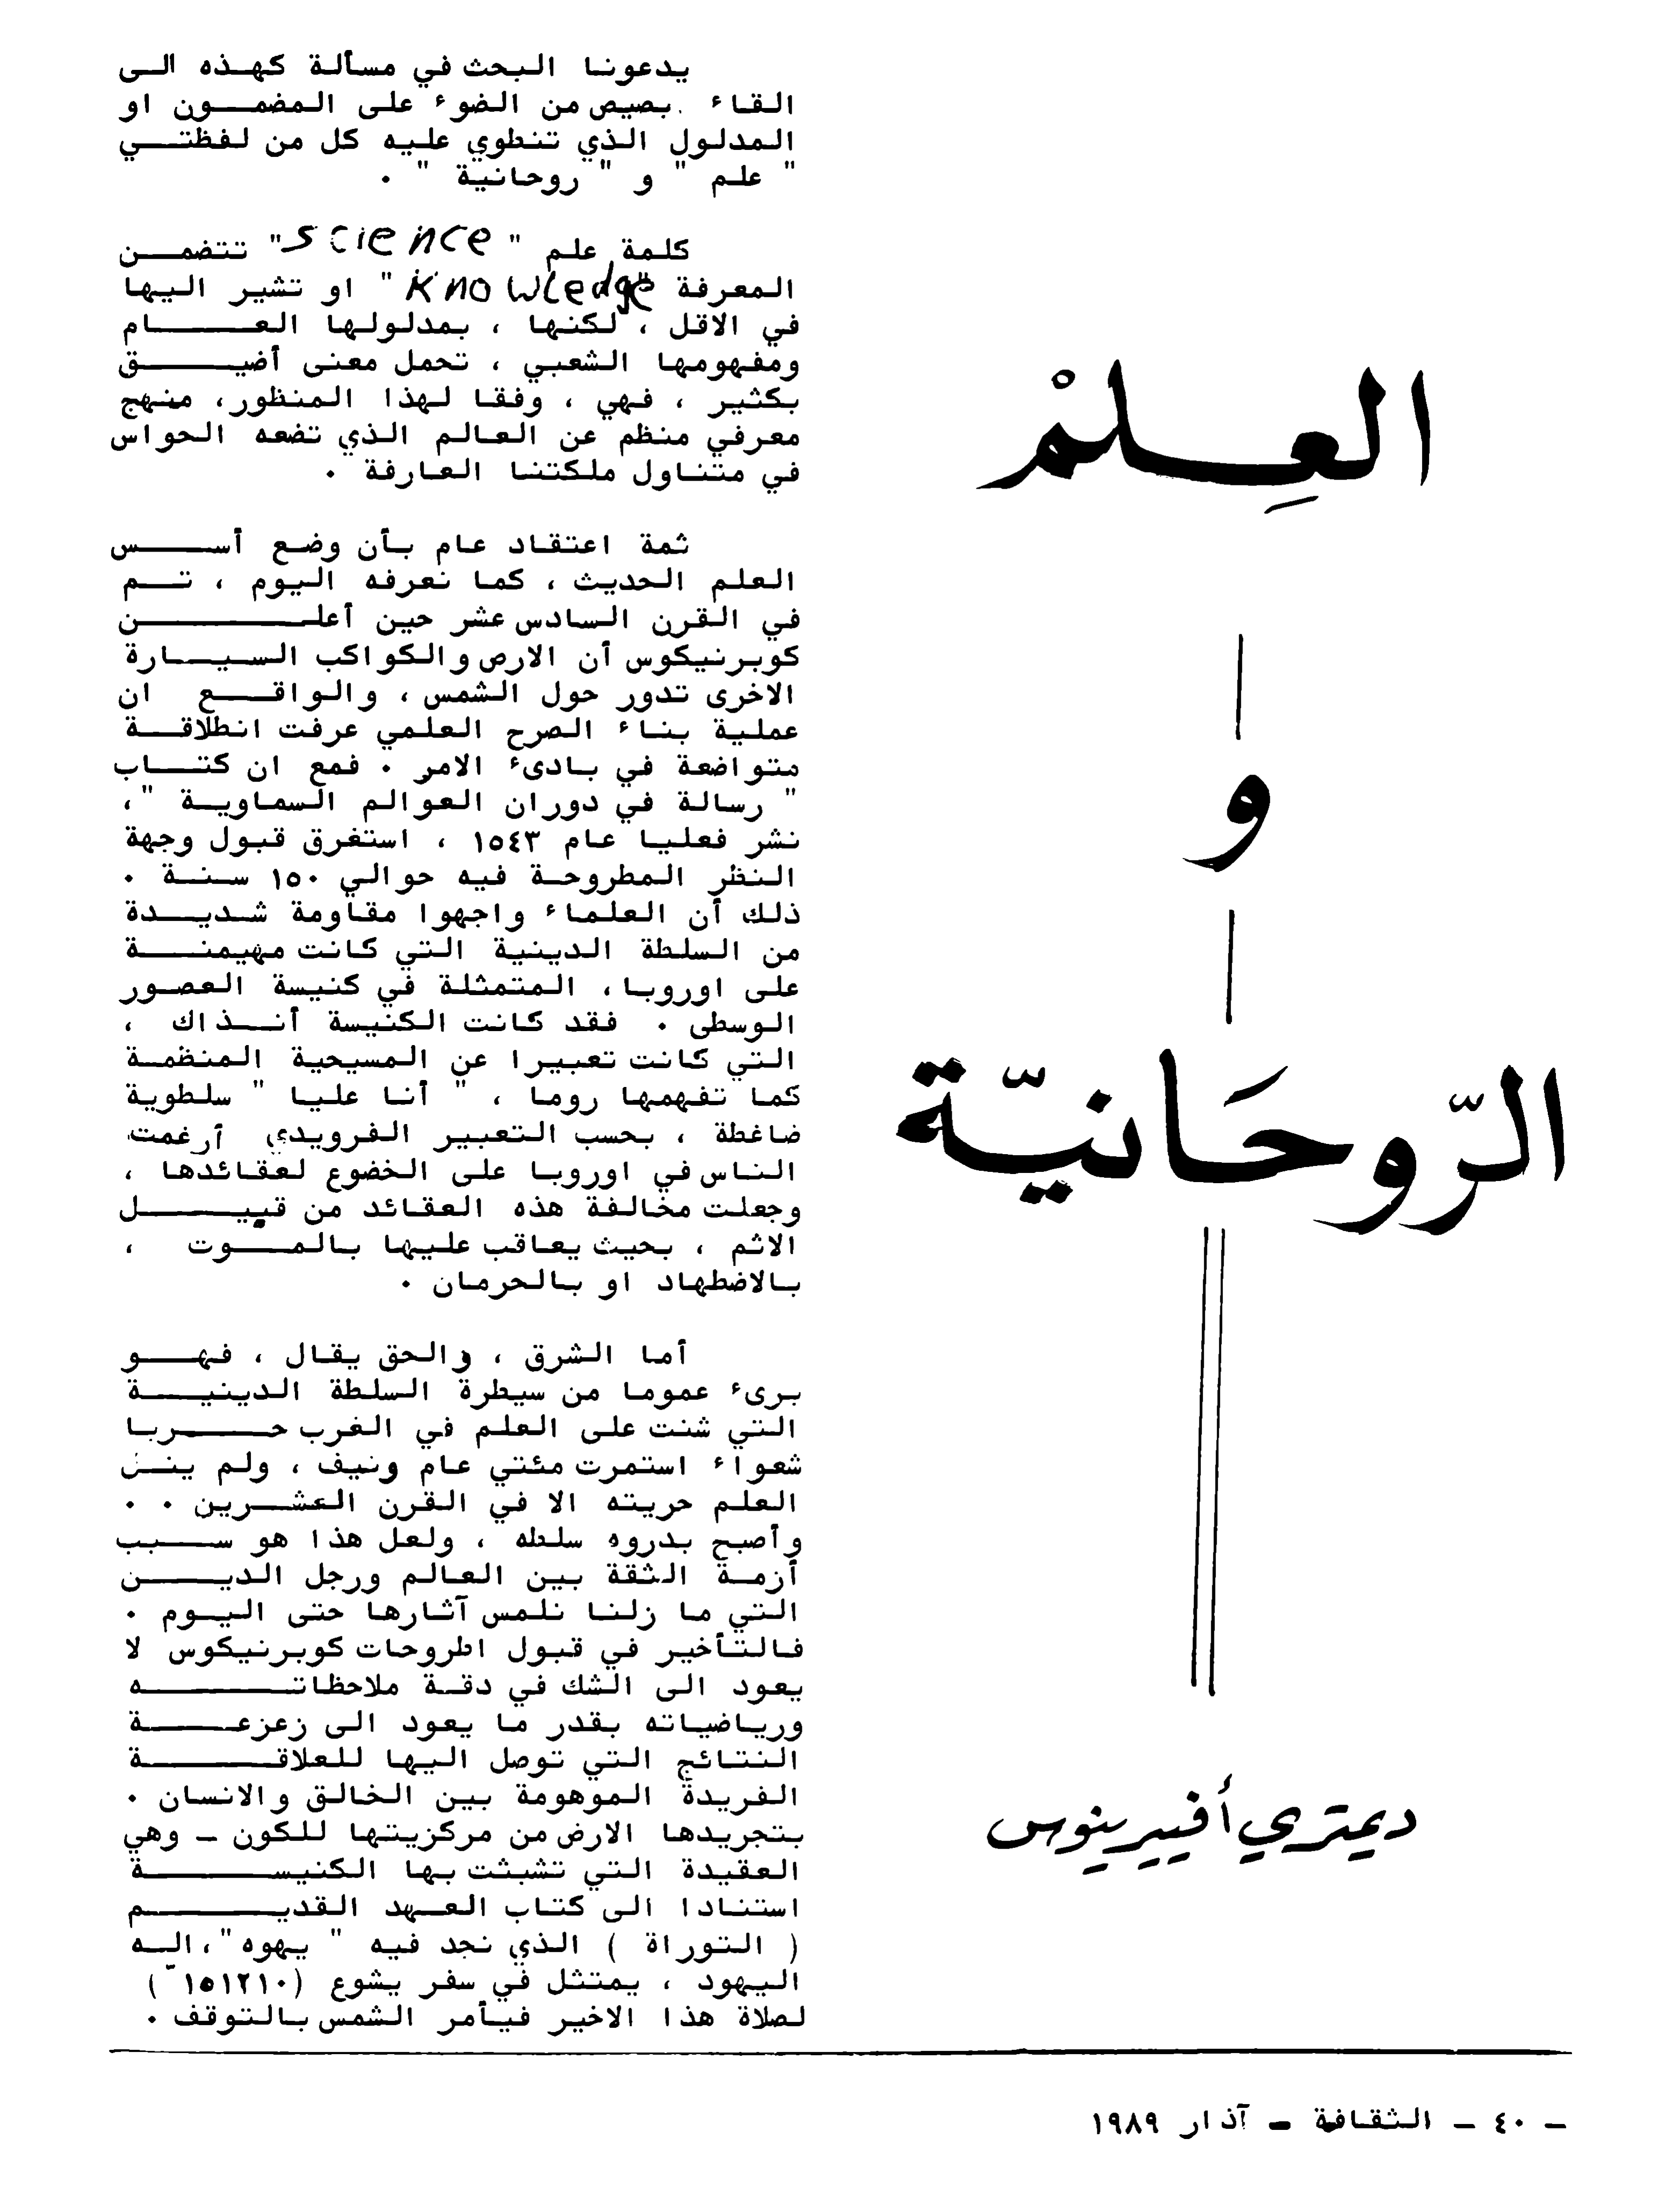 العِلمْ
و
الرّوحَانيّة
ديمتري أفييرينوس
يدعونا البحث في مسألة كهذه الى
القاء بصيص من الضوء على المضمون او
المدلول الذي تنطوي عليه كل من لفظتي
" علم " و " روحانية " .
كلمة علم " science " تتضمن
المعرفة " Knowledge " او تشير اليها
في الاقل ، لكنها ، بمدلولها العام
ومفهومها الشعبي ، تحمل معنى أضيق
بكثير ، فهي ، وفقا لهذا المنظور، منهج
معرفي منظم عن العالم الذي تضعه الحواس
في متناول ملكتنا العارفة .
ثمة اعتقاد عام بأن وضع أسس
العلم الحديث ، كما نعرفه اليوم ، تم
في القرن السادس عشر حين أعلن
كوبرنيكوس أن الارض والكواكب السيارة
الاخرى تدور حول الشمس ، والواقع ان
عملية بناء الصرح العلمي عرفت انطلاقة
متواضعة في بادىء الامر . فمع ان كتاب
" رسالة في دوران العوالم السماوية "،
نشر فعليا عام ١٥٤٣ ، استغرق قبول وجهة
النظر المطروحة فيه حوالي ١٥٠ سنة .
ذلك أن العلماء واجهوا مقاومة شديدة
من السلطة الدينية التي كانت مهيمنة
على اوروبا، المتمثلة في كنيسة العصور
الوسطى . فقد كانت الكنيسة أنذاك ،
التي كانت تعبيرا عن المسيحية المنظمة
كما تفهمها روما ، " أنا عليا " سلطوية
ضاغطة ، بحسب التعبير الفرويدي أرغمت
الناس في اوروبا على الخضوع لعقائدها ،
وجعلت مخالفة هذه العقائد من قبيل
الاثم ، بحيث يعاقب عليها بالموت ،
بالاضطهاد او بالحرمان .
أما الشرق ، والحق يقال ، فهو
برىء عموما من سيطرة السلطة الدينية
التي شنت على العلم في الغرب حربا
شعواء استمرت مئتي عام ونيف ، ولم ينل
العلم حريته الا في القرن العشرين . .
وأصبح بدروه سلطه ، ولعل هذا هو سبب
أزمة الثقة بين العالم ورجل الدين
التي ما زلنا نلمس آثارها حتى اليوم .
فالتأخير في قبول اطروحات كوبرنيكوس لا
يعود الى الشك في دقة ملاحظاته
ورياضياته بقدر ما يعود الى زعزعة
النتائج التي توصل اليها للعلاقة
الفريدة الموهومة بين الخالق والانسان .
بتجريدها الارض من مركزيتها للكون – وهي
العقيدة التي تشبثت بها الكنيسة
استنادا الى كتاب العهد القديم
( التوراة ) الذي نجد فيه " يهوه "، اله
اليهود ، يمتثل في سفر يشوع
لصلاة هذا الاخير فيأمر الشمس بالتوقف .
– ٤٠ – الثقافة – آذار ١٩٨٩